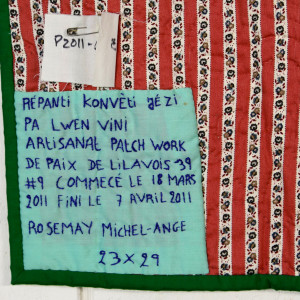 P2011-
REPANTI KONVÈTI JÉZI
PA LWEN VINI
ARTISANAL PATCH WORK
DE PAIX DE LILAVOIS 39
#9 COMMECÉ LE 18 MARS
2011 FINI LE 7 AVRIL 2011
ROSEMAY MICHEL-ANGE
23×29